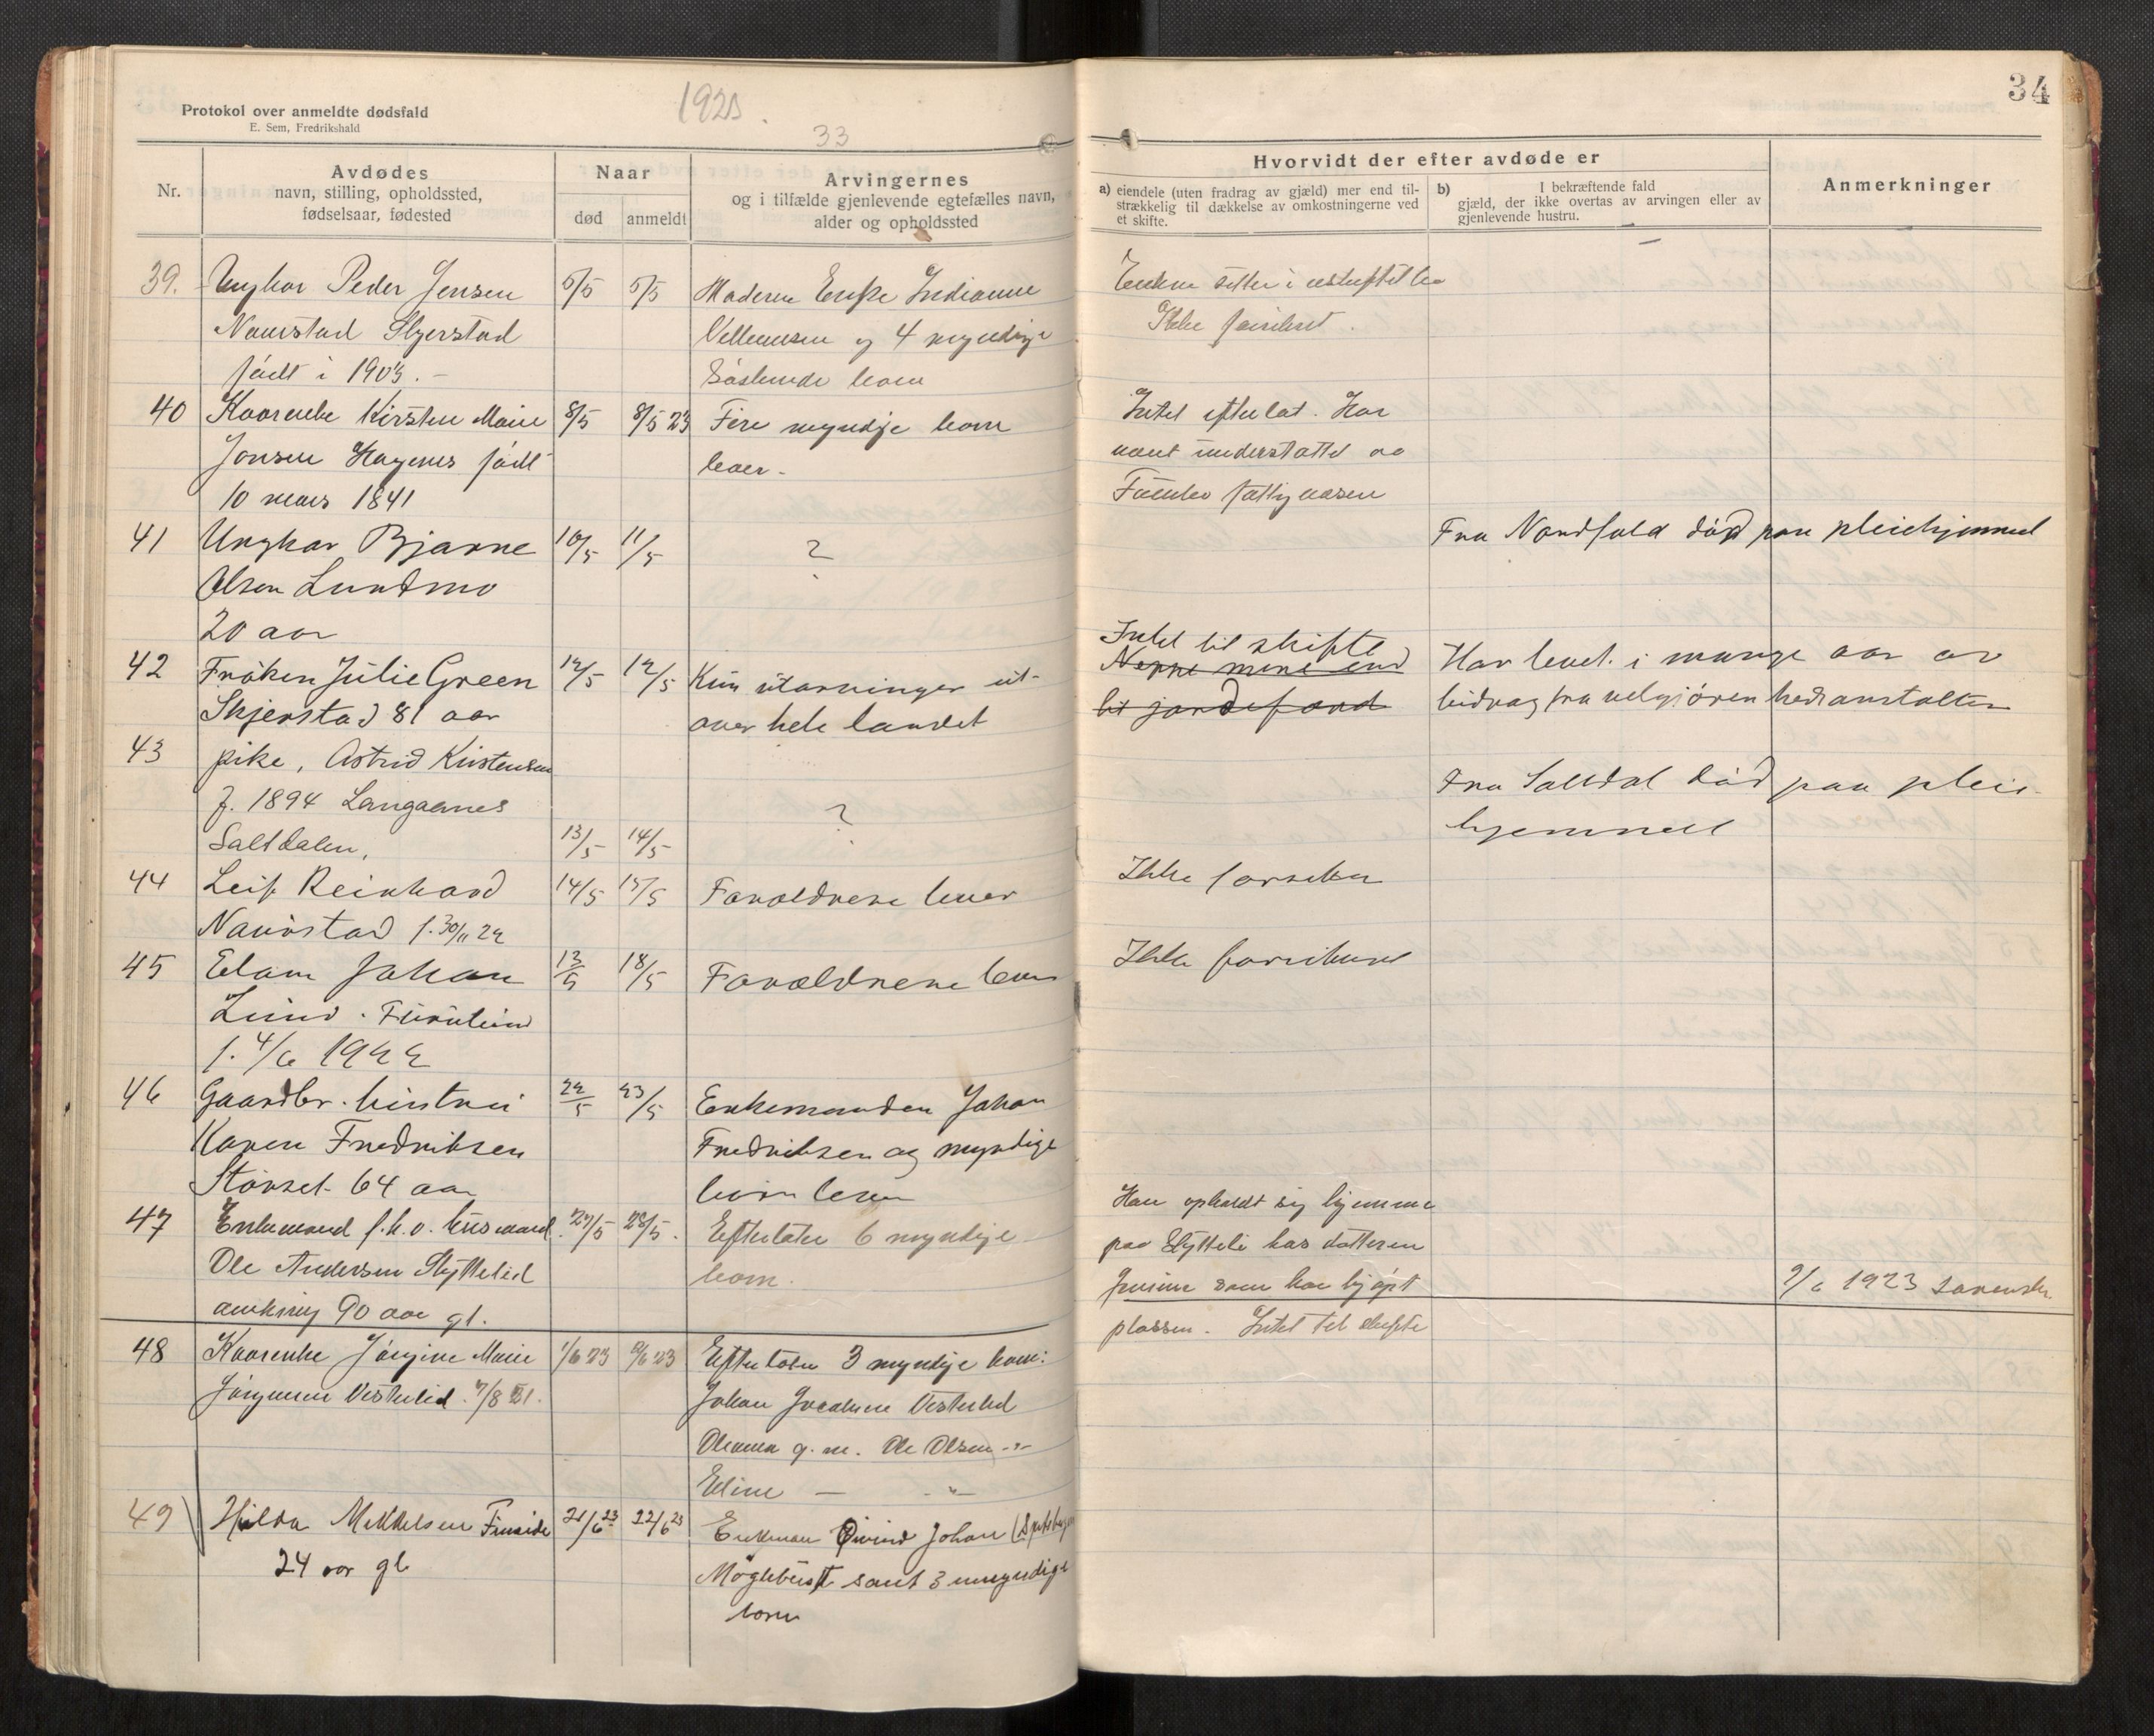 Protokol over anmeldte dødsfald
E. Sem, Fredrikshald
1923.
33
Nr.
Avdødes
navn, stilling, opholdssted,
fødselsaar, fødested
Naar
død
anmeldt
Arvingernes
og i tilfælde gjenlevende egtefælles navn,
alder og opholdssted
39. Ungkar Peder Jensen 5/5 5/5 Moderen Enke Indianne
Naurstad Skjerstad og 4 myndige
født i 1903. - Søskende
40 Kaarenke Kirsten Marie 8/5 8/5 23 Fire myndige born
Jonsen Hagenes født lever -
10 mars 1841
41 Ungkar Bjarne 10/5 11/5 ?
Olsen Lundmo
20 aar
42 Frøken Julie Green 12/5 12/5 Kun utarvinger ut-
Skjerstad 81 aar over hele landet
43 pike, Astrid Kristensen
f. 1894 Langaanes ?
Saltdalen, 13/5 14/5
44 Leif Reinhard 14/5 15/5 Forældrene lever
Naurstad f. 30/11 22
45 Edam Johan 13/5 18/5 Forældrene lever
Lund. Furulund
f. 4/6 1922
46 Gaardbr. hustru 22/5 23/5 Enkemanden Johan
Karen Fredriksen Fredriksen og myndige
Størset 64 aar born lever
47 Enkemand f.h.v. husmand 27/5 28/5. Efterlater 6 myndige
Ole Andersen Slyttelid born.
omkring 90 aar gl.
48 Kaarenke Jørgine Marie 1/6 23 6/6 23 Efterlater 3 myndige born:
Jørgensen Vesterlid. 7/8 Johan Vesterlid
g. m. Ole Olsen -"-
Eline — -"-
49 Hilda Mikkelsen 21/6 23 22/6 23 Enkeman Øivind Johan (Spitsbergen
24 aar gl samt 3 umyndige
born
34
Hvorvidt der efter avdøde er
a) eiendele (uten fradrag av gjæld) mer end til-
strækkelig til dækkelse av omkostningerne ved
et skifte.
b) I bekræftende fald
gjæld, der ikke overtas av arvingen eller av
gjenlevende hustru.
Anmerkninger
Enken sitter i uskiftet bo
Ikke forsikret.
Intet efterlat. Har
vært understøttet av
fattigvæsen
Fra Nordfold død paa pleiehjemmet
Intet til skifte
Neppe mere end
til jordefærd
Har levet i mange aar av
bidrag fra velgjørenhedsanstalter
Fra Saltdal død paa pleie-
hjemmet
Ikke forsikra
Ikke forsikret
Han opholdt sig hjemme
paa Slytteli hos datteren
som har kjøpt
plassen. Intet til skifte
2/6 1923